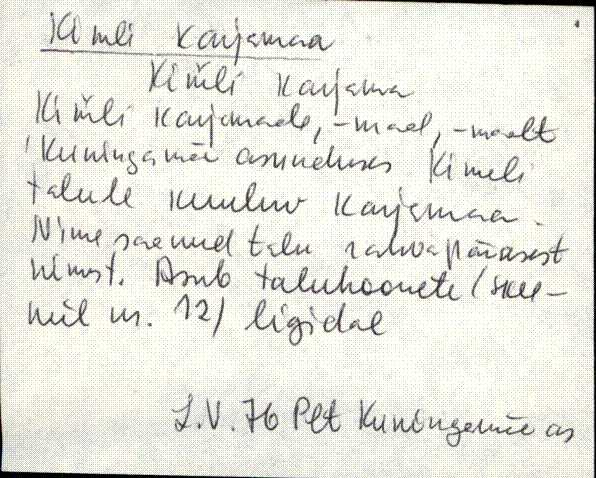 Kimli karjamaa
Kimli karjama
Kimli karjamaale, -maal, -maalt
Kuningamäe asunduses Kimeli
talule kuuluv karjamaa.
Nime saanud talu rahvapärasest
nimest. Asub taluhoonete (skee-
mil nr. 12) ligidal
L.V. 76 Plt Kuningamäe as